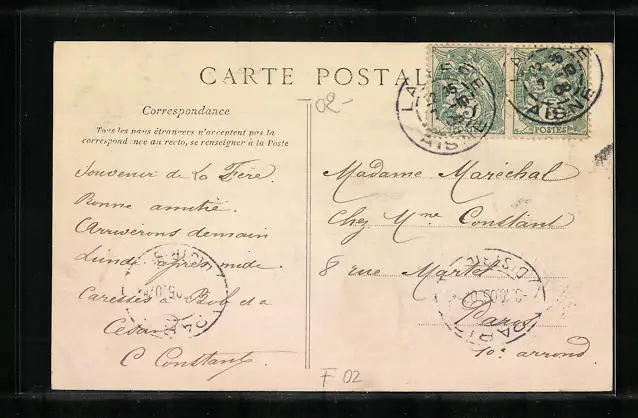 CARTE POSTALE
02-
Correspondance
Tous les pays étrangers n'acceptent pas la
correspondance au recto, se renseigner à la Poste
Souvenir de La Fère.
Bonne amitié.
Arriverons demain
Lundi après midi.
Caresses à Bob et a
César
C Constant
Madame Maréchal
Chez Mme Constant
8 rue Martel
Paris
10e arrond.
LA FERE
AISNE
LA FERE
AISNE
POSTES
PARIS
DISTRIB
F 02